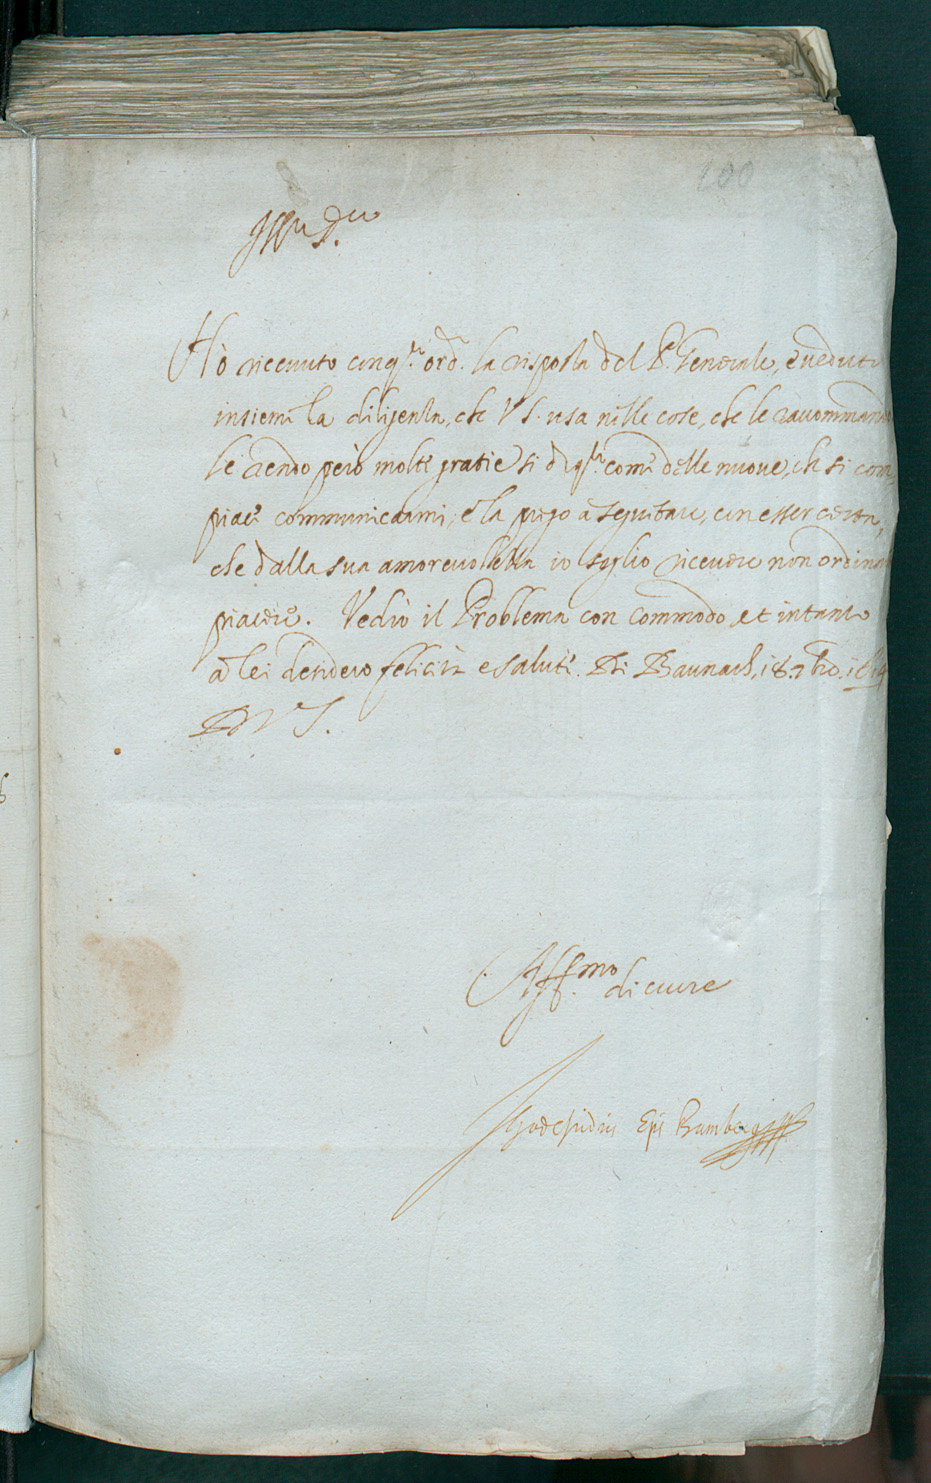 100
Hò riceuuto con q.sto ord.o la risposta del P.re Generale, è ueduto
insieme la diligenza, che V S. usa nelle cose, che le raccommando
le rendo però molte gratie si di q.sta come delle nuoue, che si com
piace communicarmi, e la prego à seguitare, con esser certa,
che dalla sua amoreuolezza io soglio riceuere non ordina
piacere. Vedrò il Problema con commodo, et intanto
à lei desidero felicità e salute. Di Baunach, 18. 7bre. 1614
Di V S.
Aff.mo di cuore
Godefridus Eps Bamberg